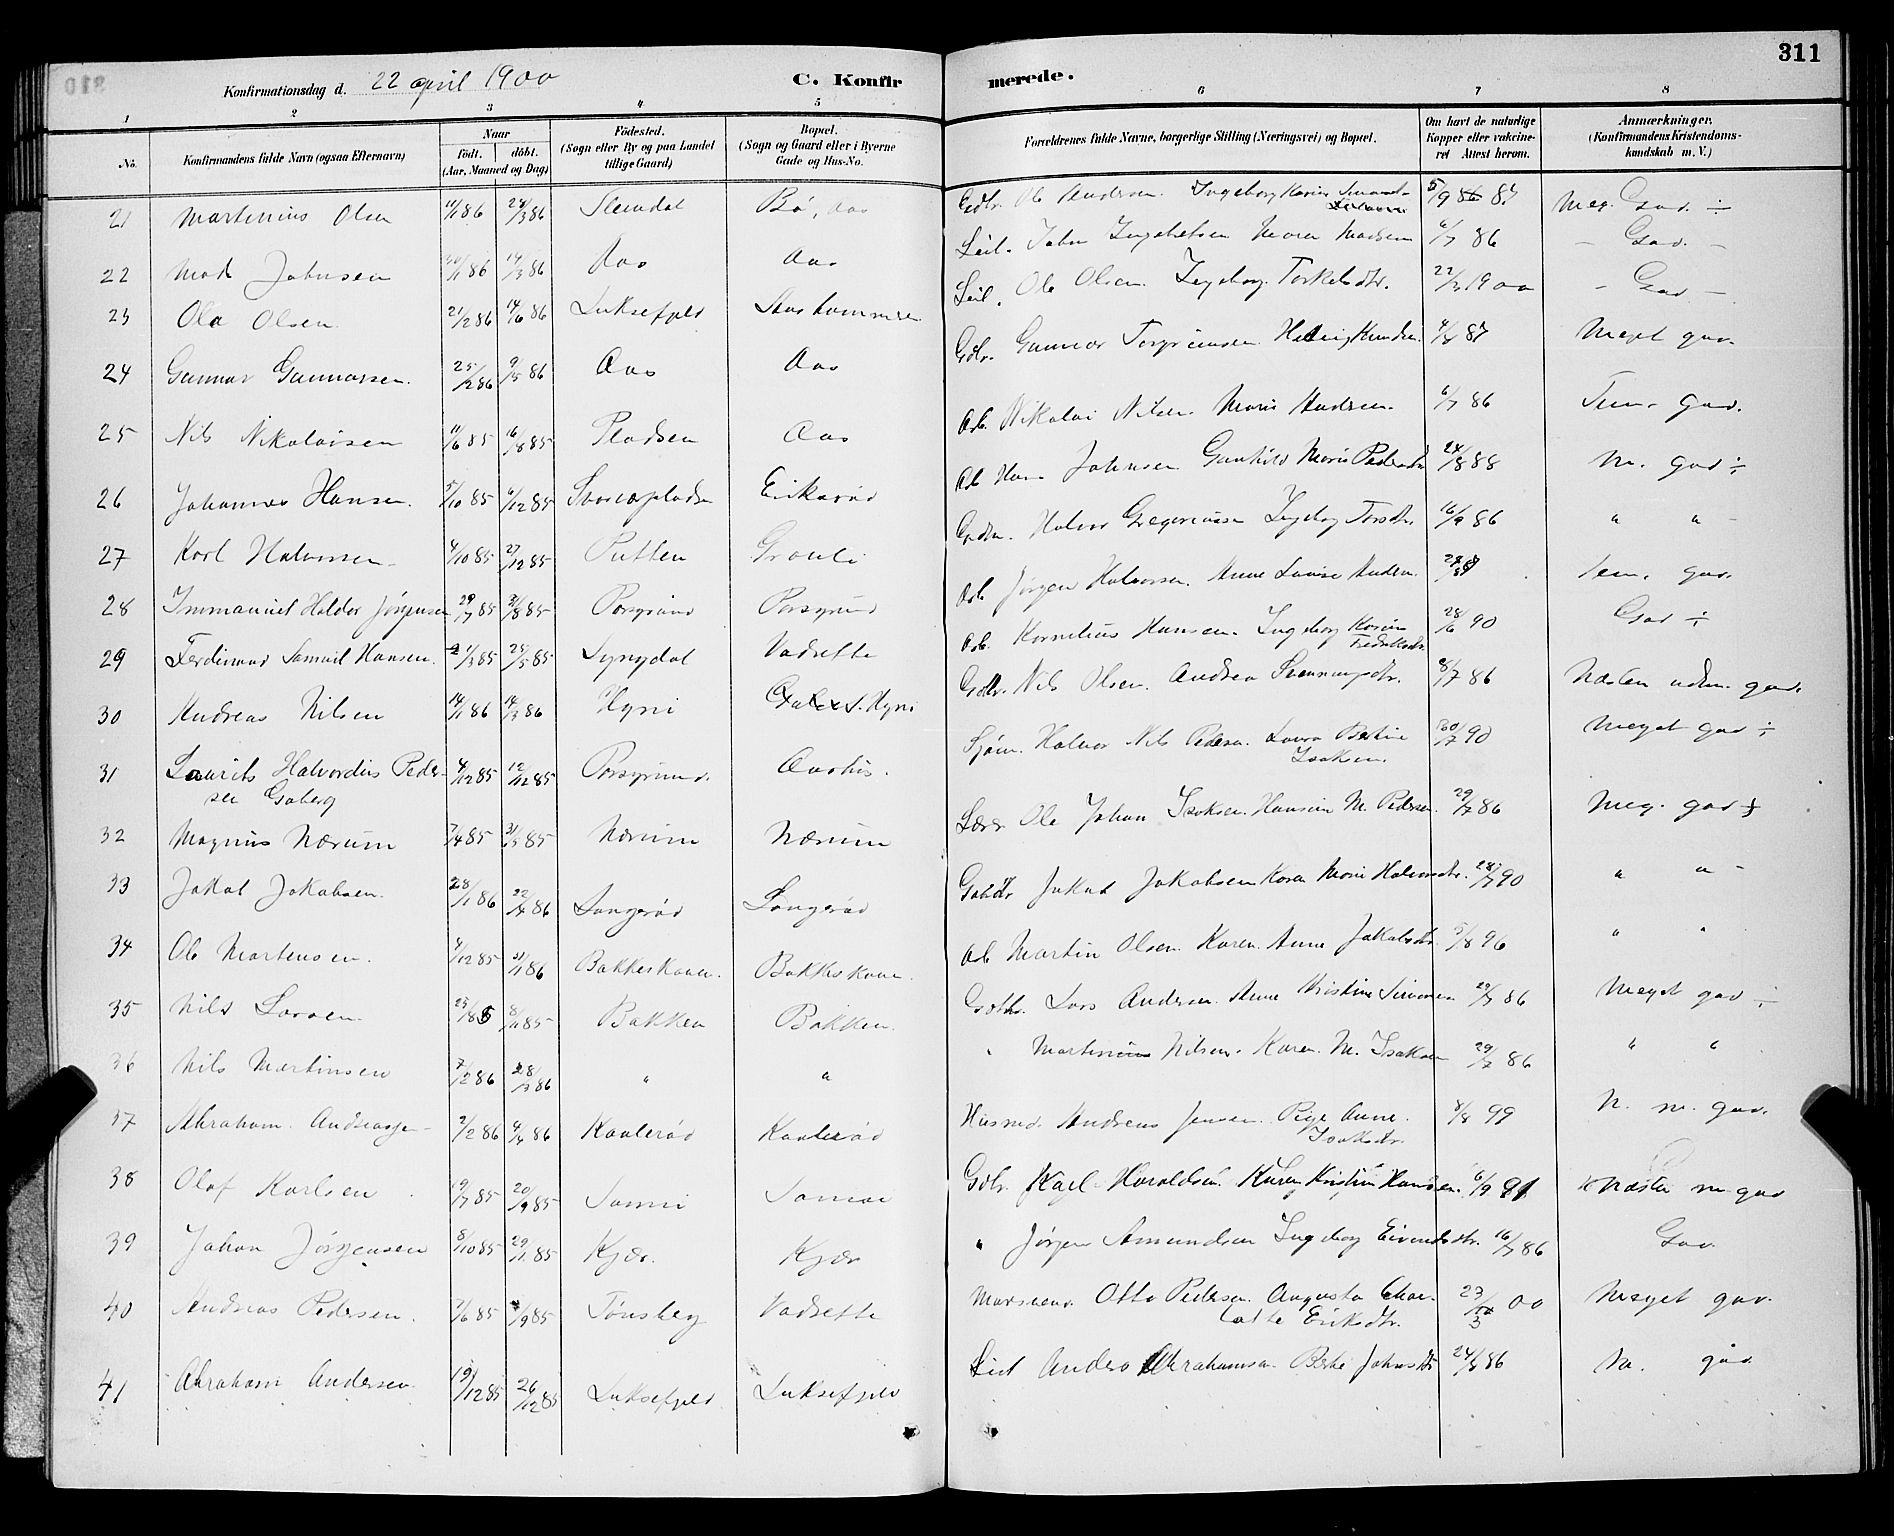 311
Konfirmationsdag d. 22 april 1900 C. Konfirmerede.
1 2 3 4 5 6 7 8
No. Konfirmandens fulde Navn (ogsaa Efternavn) Naar født. døbt. (Aar, Maaned og Dag) Fødested. (Sogn eller By og paa Landet tillige Gaard) Bopæl. (Sogn og Gaard eller i Byerne Gade og Hus-No. Forældrenes fulde Navne, borgerlige Stilling (Næringsvei) og Bopæl. Om havt de naturlige Kopper eller vaccineret Attest herom. Anmærkninger. (Konfirmandens Kristendomskundskab m. V.)
21 Martinius Olsen 11/1 86 28/3 86 Slemdal Bö, Aas Gdbr. Ole Andersen Ingeborg Karine 5/9 86 87 Meg. God ÷
22 Mads Johnsen 30/1 86 14/3 86 Aas Aas Leil. John Ingebretsen Maren Madsen 6/7 86 – God. –
23 Ole Olsen 21/2 86 14/6 86 Luksefjeld Leil. Ole Olsen Ingeborg Torkelsdtr. 22/3 1900 – God –
24 Gunnar Gunnarsen. 25/2 86 9/5 86 Aas Aas Gdbr. Gunnar Helvig Knudsen 4/8 87 Meget god.
25 Nils Nikolaisen 11/6 85 16/8 85 Pladsen Aas Arb. Nikolai Nilsen Maria Andersen. 6/7 86 Tem. god.
26 Johannes Hansen. 5/10 85 6/12 85 Eriksrød Arb Hans Johnsen Gunhild Marie Pedersdtr 24/8 88 M. god ÷
27 Karl Halvorsen 4/10 85 27/12 85 Putten Grönli Halvor Gregoriussen Ingeborg 16/9 86 " " –
28 Immanuel Haldor Jørgensen 29/7 85 31/8 85 Porsgrund Porsgrund Arb Jørgen Halvorsen. Anne Lovise Andersen Tem. god.
29 Ferdinand Samuel Hansen. 1/3 85 25/5 85 Lyngdal Vadrette Arb. Kornelius Hansen. Ingeborg Karine Fredriksdtr. 28/6 90 God ÷
30 Andreas Nilsen 14/1 86 14/3 86 Hyni Hyni Gdbr. Nils Olsen. Andrea Svenningsdtr. 8/7 86 Næsten udm. god.
31 Laurits Halvordius Peder- 4/12 85 12/12 85 Porsgrund Aarhus. Sjøm. Halvor Nils Pedersen. Laura Bertine 30/7 90 Meget god ÷
sen Goberg Isaksen.
32 Magnus Nærum 7/4 85 31/5 85 Nærum Nærum Lærer Ole Johan Isaksen. Hansine M. Pedersen. 29/7 86 Meg. god ÷
33 Jakob Jakobsen. 28/1 86 22/4 86 Langerød Langerød Gdbr Jakob Jakobsen Karen Marie Halvorsdtr. 28/7 90 " " –
34 Ole Martensen. 4/12 85 31/1 86 Bakkeskaan. Bakkeskaan. Arb Martin Olsen. Karen Anne Jakobsdtr. 5/8 96 " "
35 Nils Larsen. 23/8 85 8/11 85 Bakken Bakken. Gdbr. Lars Andersen. Anne Kristine Simonsen 29/7 86 Meget god ÷
36 Nils Martinsen 7/2 86 28/3 86 " " " Martinius Nilsen. Karen M. Isaksen 29/7 86 " "
37 Abraham Andreassen 2/2 86 9/4 86 Kaaterød Kaaterød Husmd. Andreas Jensen. Pige Anne Isaksdtr. 8/8 99 N. m. god.
38 Olaf Karlsen 19/7 85 20/9 85 Sanni Gdbr. Karl Haraldsen. Karen Kristine Hansen. 6/9 91 Næsten m. god
39 Johan Jørgensen 8/10 85 29/11 85 Kjær. Kjær " Jørgen Amundsen Ingeborg Eivindsdtr. 16/7 86 God.
40 Andreas Pedersen. 7/6 85 /9 85 Tønsberg Vadrette Otto Pedersen. Augusta Char-
lotte Eriksdtr. 23/3 00 Meget god.
41 Abraham Andersen 19/12 85 26/12 85 Luksefjeld. Luksefjeld Leil Anders Abrahamsen Berte Johnsdtr 24/8 86 M. god.